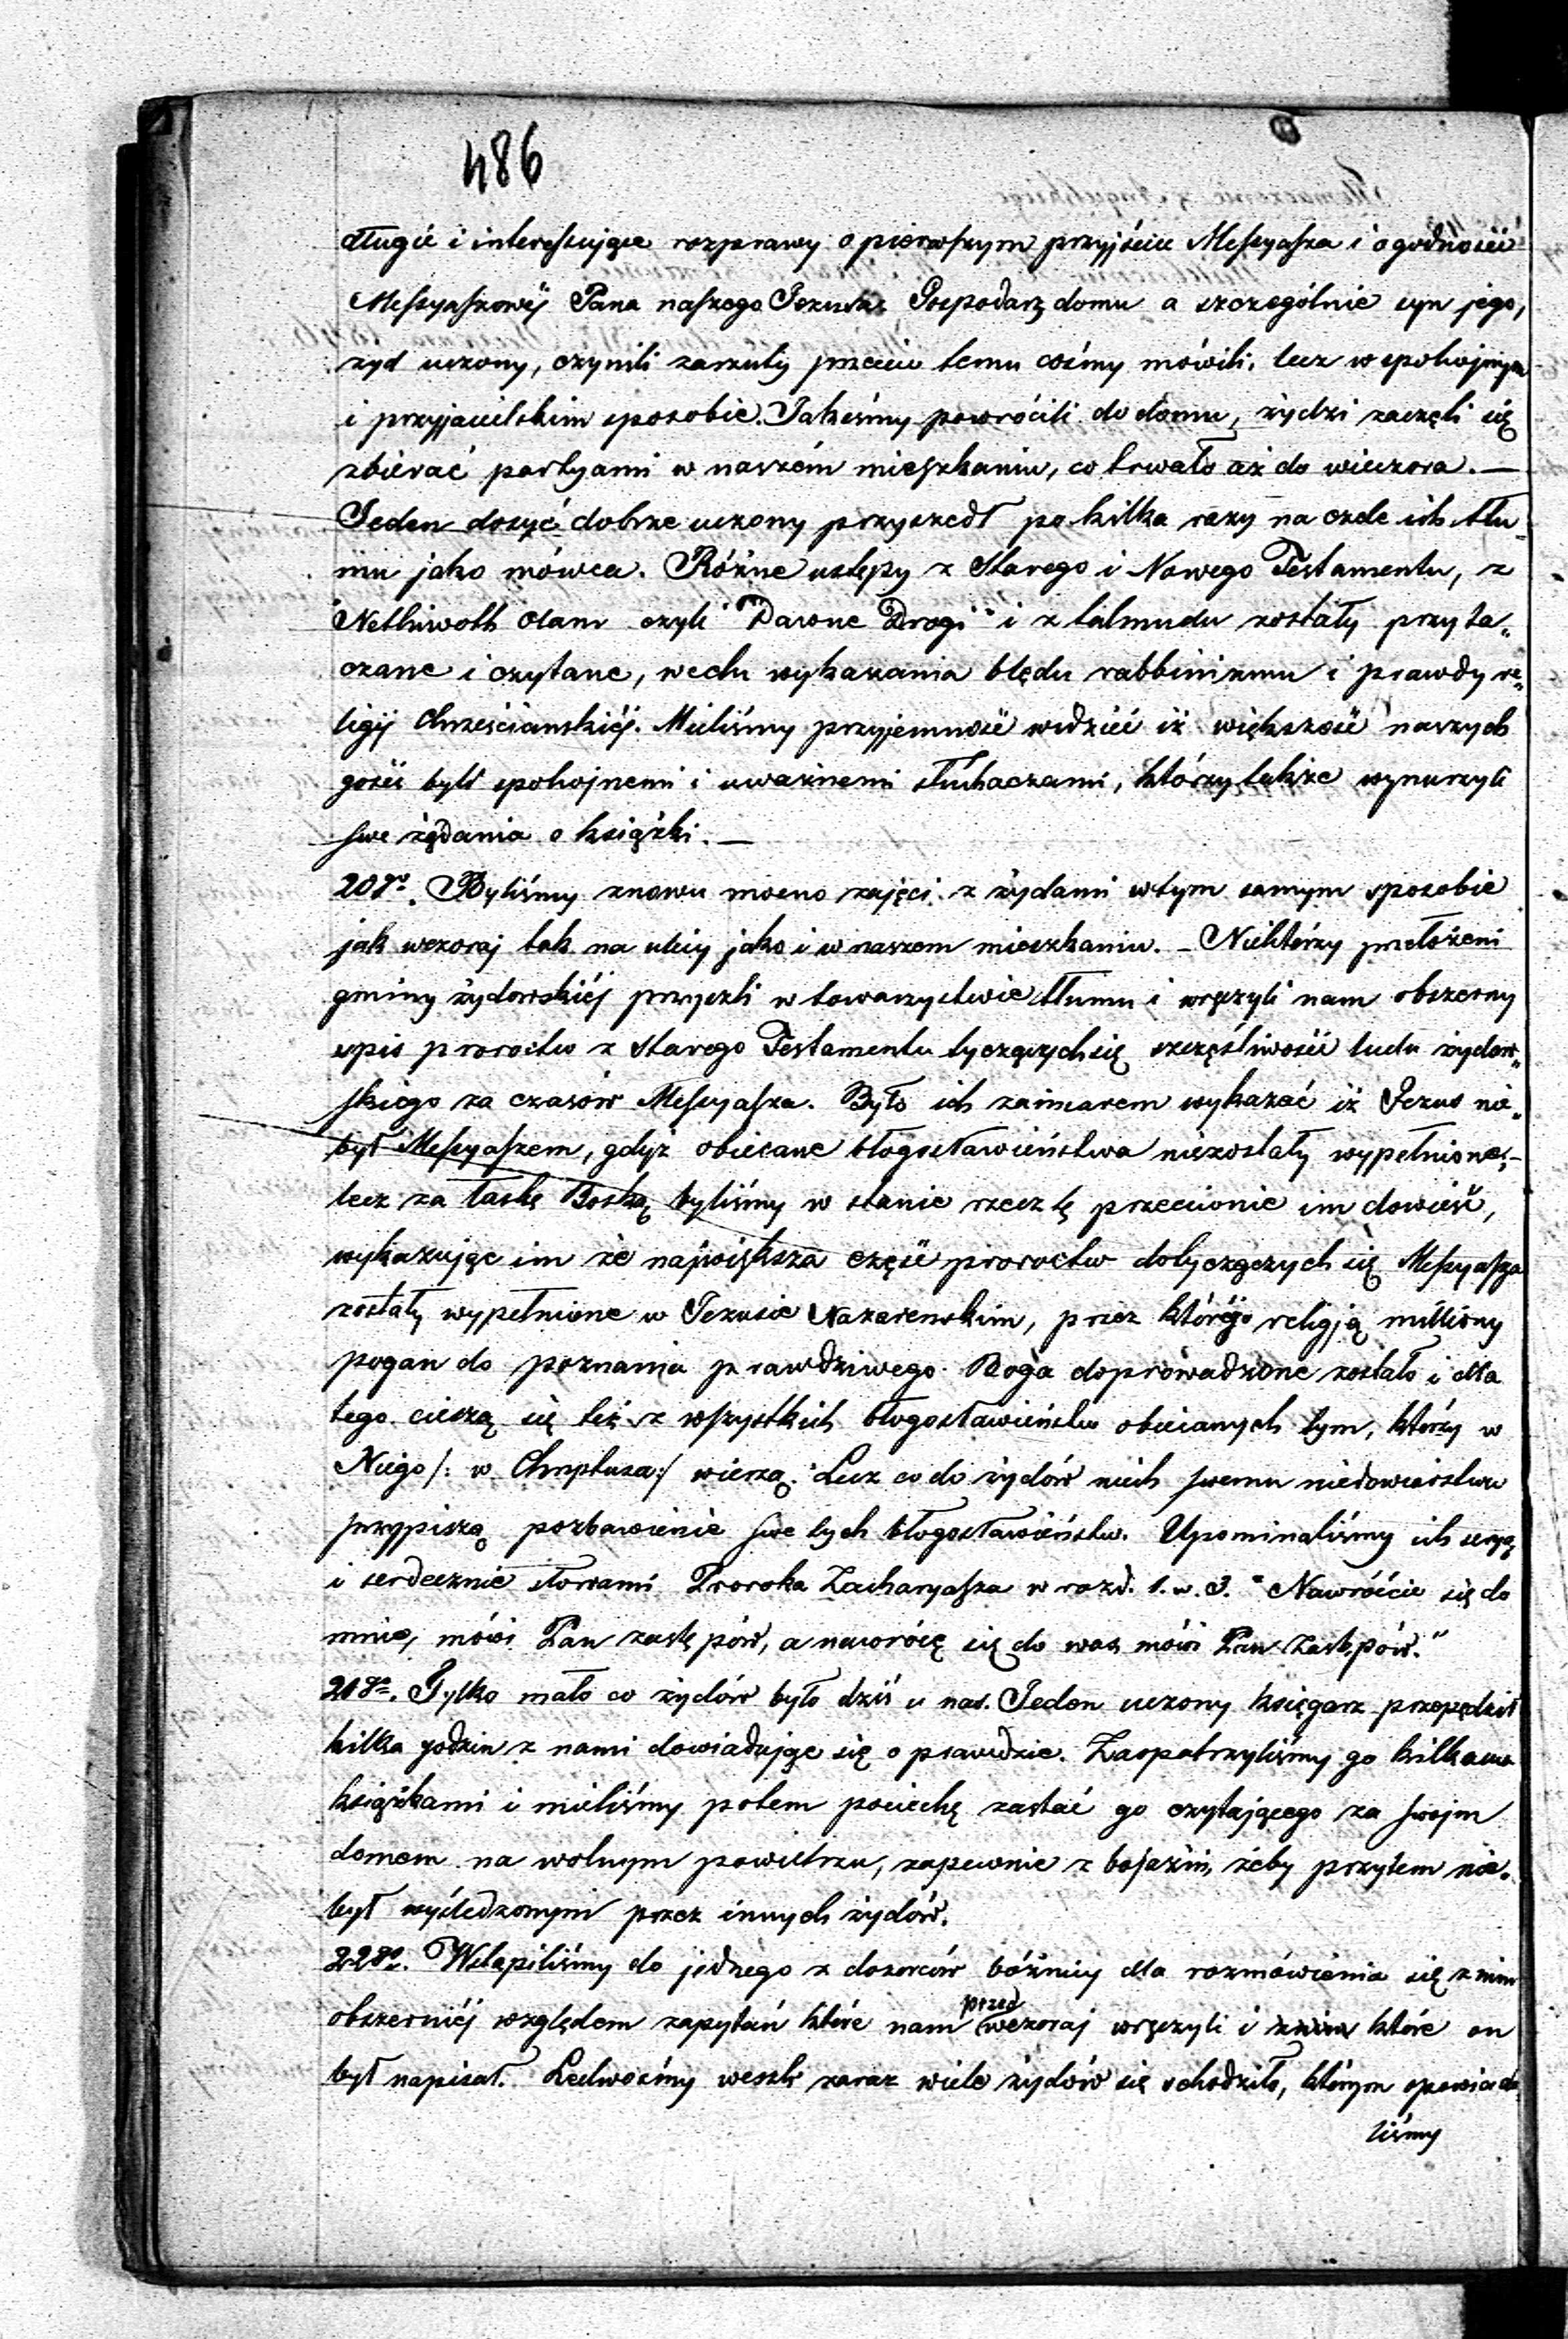 486
długie i interessujące rozprawy o pierwszym przyjściu Messyasza i o godności
Messyaszowéj Pana naszego Jezusa. Gospodarz domu a szczególnie syn jego,
żyd uczony, czynili zarzuty przeciw temu cośmy mówili, lecz w spokojnym
i przyjacielskim sposobie. Jakeśmy powrócili do domu, żydzi zaczęli się
zbierać partyami w naszém mieszkaniu, co trwało aż do wieczora. —
Jeden dosyć dobrze uczony przyszedł po kilka razy na czele ich tłu-
mu jako mówca. Różne ustępy z Starego i Nowego Testamentu, z
Nethiwoth Olam czyli "Dawne Drogi" i z talmudu zostały przyta-
czane i czytane, w celu wykazania błędu rabbinizmu i prawdy re-
ligij Chrześcianskiéj. Mieliśmy przyjemność widzieć iż większość naszych
gości byli spokojnemi i uważnemi słuchaczami, którzy także wynurzyli
swe żądania o książki. —
20go. Byliśmy znowu mocno zajęci z żydami w tym samym sposobie
jak wczoraj tak na ulicy jako i w naszem mieszkaniu. — Niektórzy przełożeni
gminy żydowskiéj przyszli w towarzystwie tłumu i wręczyli nam obszerny
spis proroctw z Starego Testamentu tyczących się szczęśliwości ludu żydow-
skiego za czasów Messyasza. Było ich zamiarem wykazać iż Jezus nie-
był Messyaszem, gdyż obiecane błogosławieństwa niezostały wypełnione, —
lecz za łaską Boską byliśmy w stanie rzecz tę przeciwnie im dowieść,
wykazując im że największa część proroctw dotyczących się Messyasza
zostały wypełnione w Jezusie Nazarenskim, przez którego religją milliony
pogan do poznania prawdziwego Boga doprowadzone zostało i dla
tego cieszą się też z wszystkich błogosławieństw obiecanych tym, którzy w
Niego /: w Chrystusa :/ wierzą. Lecz co do żydów niech swemu niedowiarstwu
przypiszą pozbawienie swe tych błogosławieństw. Upominaliśmy ich
i serdecznie słowami Proroka Zacharyasza w rozd. 1. w. 3. "Nawróćcie się do
mnie, mówi Pan zastępów, a nawrócę się do was, mówi Pan Zastępów."
21go. Tylko mało co żydów było dziś u nas. Jeden uczony księgarz przepędził
kilka godzin z nami dowiadując się o prawdzie. Zaopatrzyliśmy go kilkoma
książkami i mieliśmy potem pociechę zastać go czytającego za swojm
domem na wolnym powietrzu, zapewnie z bojaźni, żeby przytem nie-
był wyśledzonym przez innych żydów.
22go. Wstąpiliśmy do jednego z dozorców bóźnicy dla rozmówienia się z nim
obszerniéj względem zapytań które nam przed wczoraj wręczyli i które on
był napisał. Ledwośmy weszli zaraz wiele żydów się schodziło, którym opowiada-
liśmy